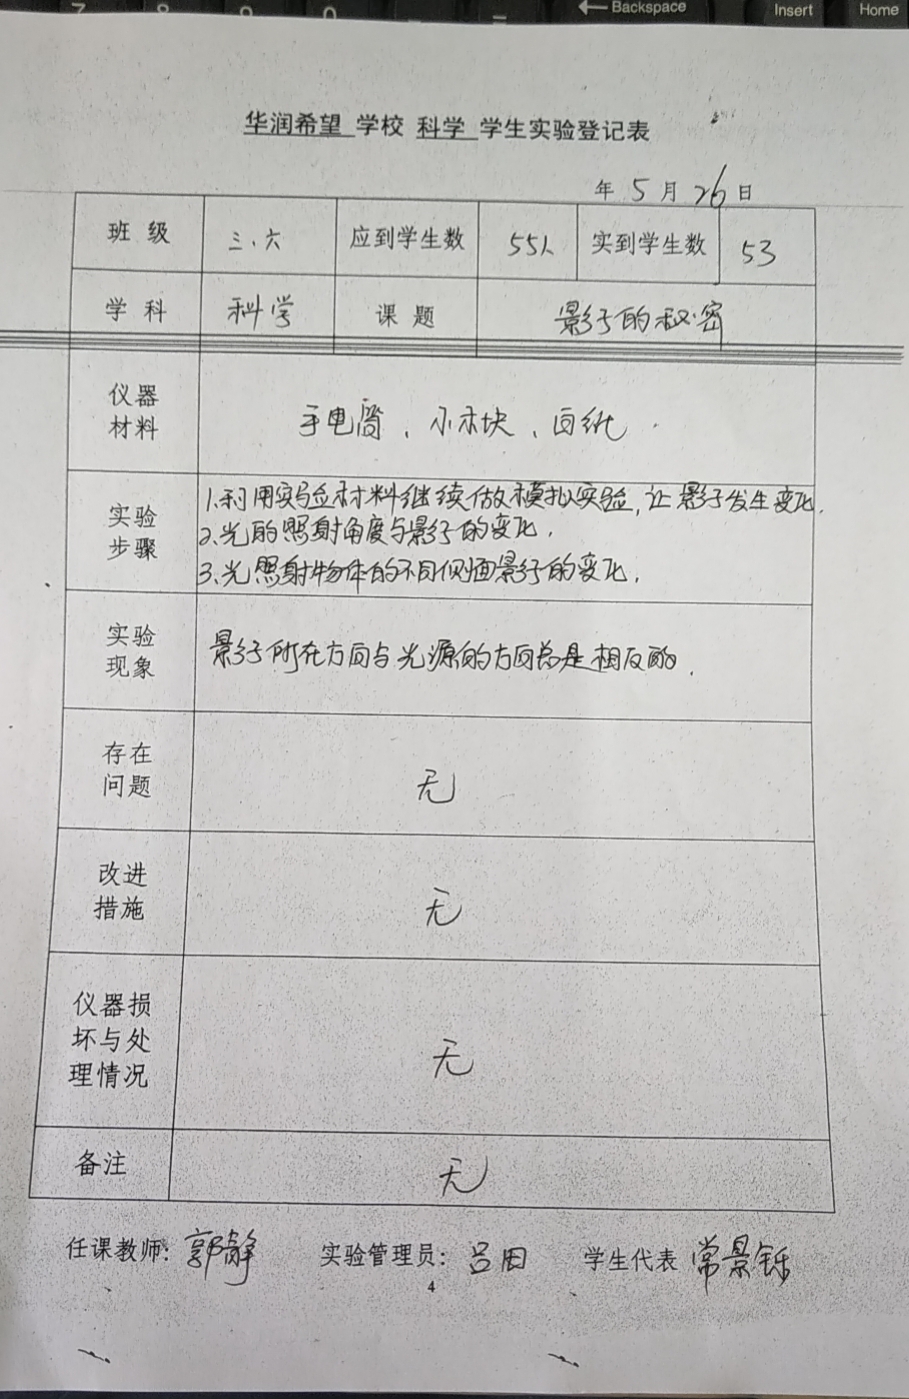 Backspace
Insert
Home
华润希望 学校 科学 学生实验登记表
年 5 月 26 日
班 级 三、六 应到学生数 55人 实到学生数 53
学 科 科学 课 题 影子的秘密
仪器
材料
手电筒、小木块、白纸
实验
步骤
1.利用实验材料继续做模拟实验,让影子发生变化.
2.光的照射角度与影子的变化.
3.光照射物体的不同侧面影子的变化.
实验
现象
影子所在方向与光源的方向总是相反的.
存在
问题
无
改进
措施
无
仪器损
坏与处
理情况
无
备注
无
任课教师: 郭静 实验管理员: 吕 学生代表 常景铄
4